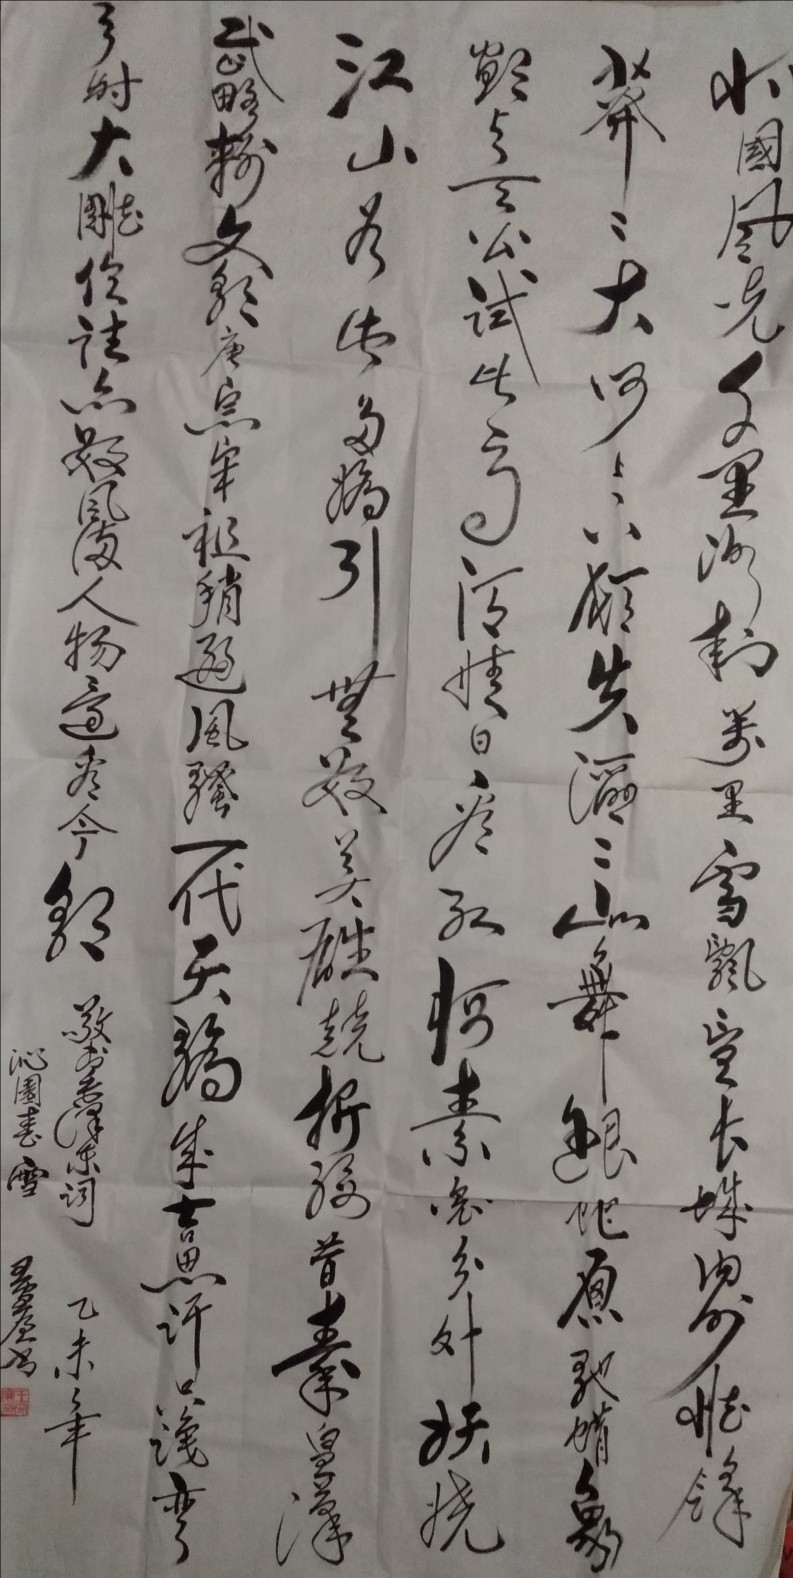 北國風光千里冰封萬里雪飄望长城内外惟餘
莽〻大河上下頓失滔〻山舞銀蛇原馳蜡象
欲与天公試比高须晴日看红妝素裹分外妖娆
江山如此多嬌引無數英雄競折腰昔秦皇漢
武略輸文彩唐宗宋祖稍遜風騷一代天驕成吉思汗只識弯
弓时大雕俱往矣數風流人物還看今朝
敬书毛泽东词
沁園春雪
乙未年